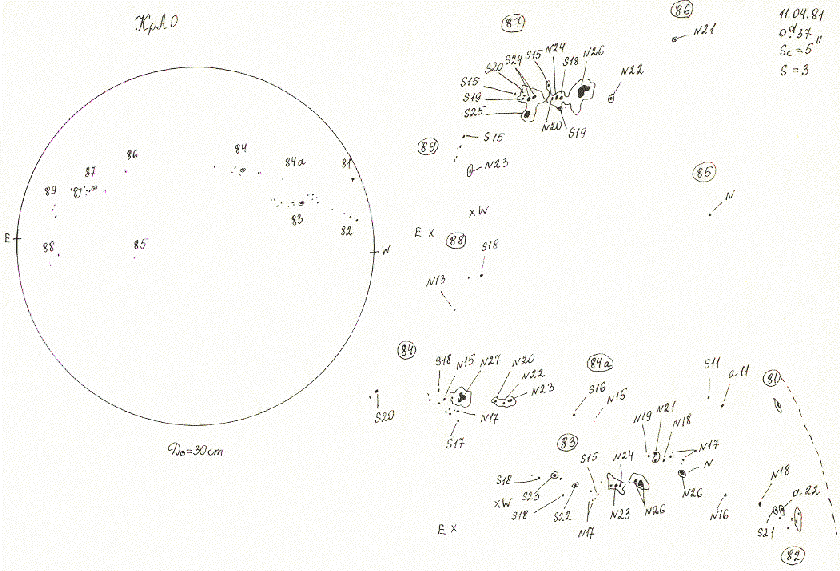 КрАО
11.04.81
Sc = 5"
S = 3
86
N21
87
S15 N24 N26
S20 S24 S18
S15
S19
S25
N22
N20 S19
89
S15
N23
85
N
x W
E x
88
S18
N13
84 84a 81
86
87
89
83 82
E
N
88 85
D₀=30cm
84
S18 N15 N27 N26
N22
N23
N17
S17
S20
84a
S16 N15
S11
81
83
N19 N21 N18
N17
N
N26
S15 N24
S18
S23
x W
S18
S22
N17
N23 N26
N16
N18
S21
82
E x